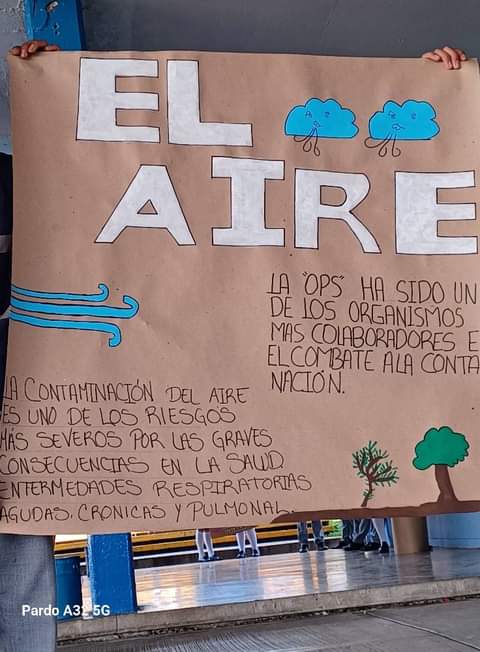 EL
AIRE
LA "OPS" HA SIDO UN
DE LOS ORGANISMOS
MAS COLABORADORES E
EL COMBATE A LA CONTA
NACIÓN.
LA CONTAMINACIÓN DEL AIRE
ES UNO DE LOS RIESGOS
MÁS SEVEROS POR LAS GRAVES
CONSECUENCIAS EN LA SALUD
ENFERMEDADES RESPIRATORIAS
AGUDAS, CRONICAS Y PULMONAL.
Pardo A32 5G